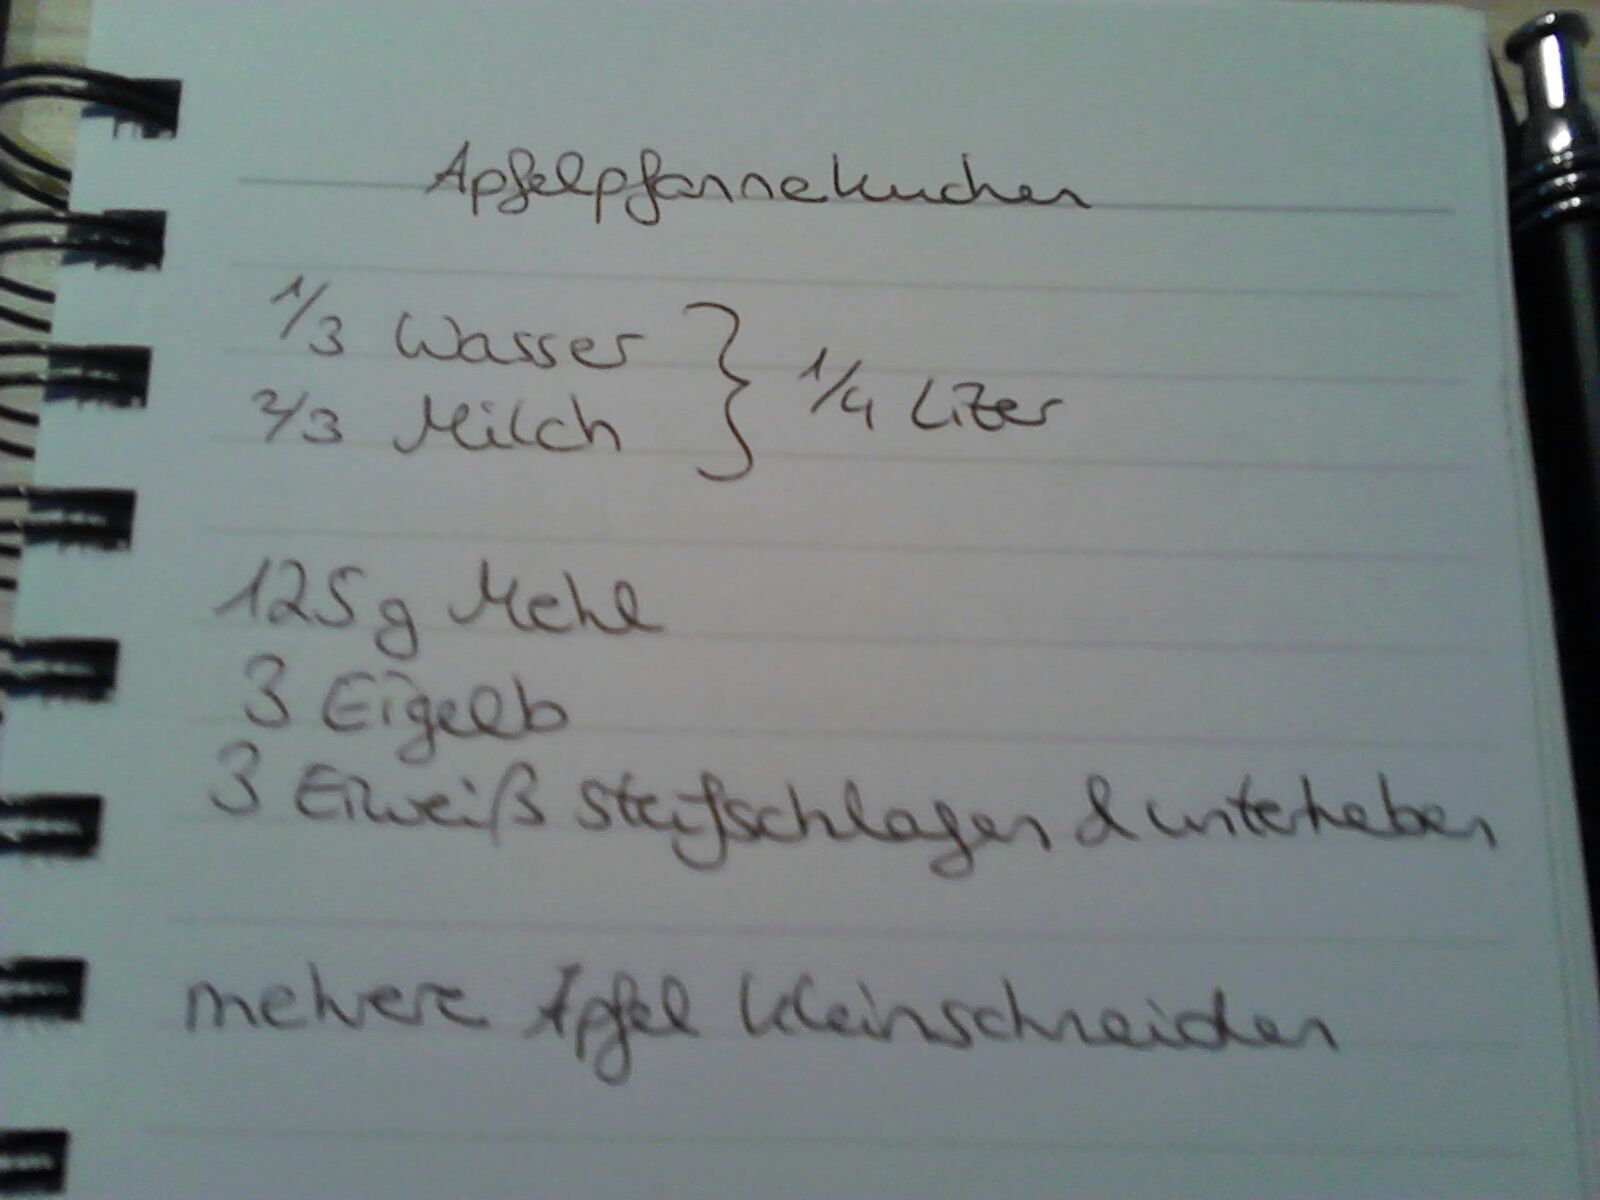 Apfelpfannekuchen
1/3 Wasser } 1/4 Liter
2/3 Milch
125g Mehl
3 Eigelb
3 Eiweiß steifschlagen & unterheben
mehrere Äpfel kleinschneiden